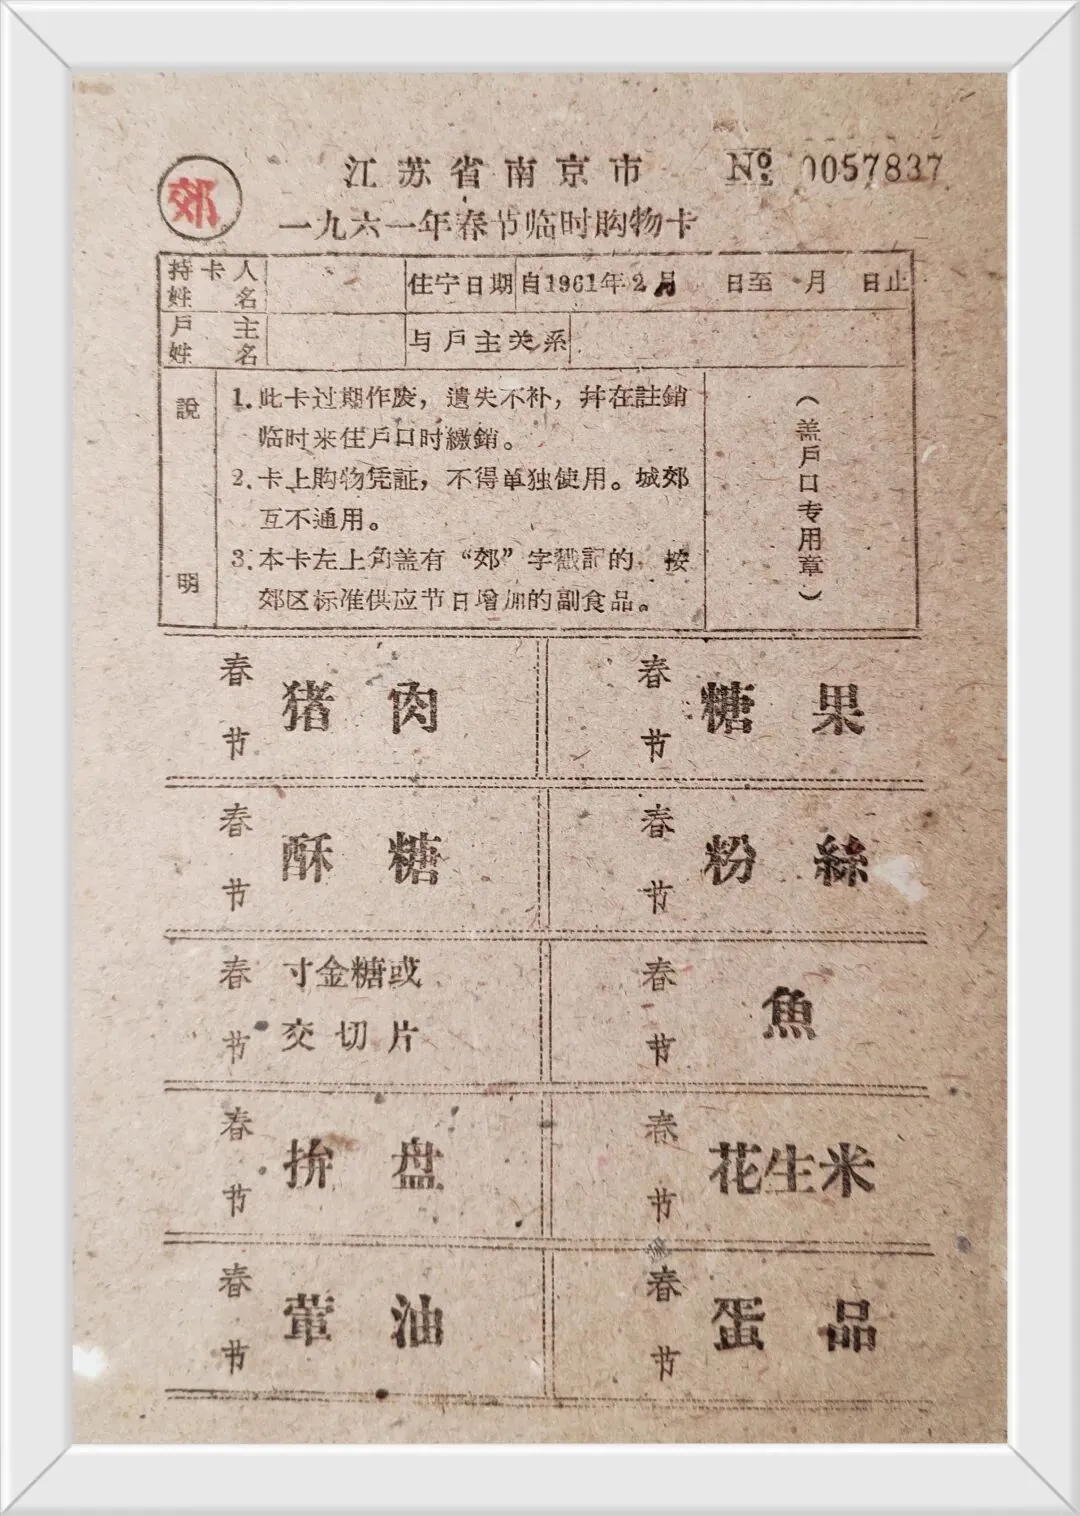 郊
江苏省南京市 № 0057837
一九六一年春节临时购物卡
持卡人姓名 住宁日期 自1961年2月 日至 月 日止
戶主姓名 与戶主关系
說明
1. 此卡过期作废，遺失不补，幷在註銷
临时来住戶口时繳銷。
2. 卡上购物凭証，不得单独使用。城郊
互不通用。
3. 本卡左上角盖有“郊”字戳記的，按
郊区标准供应节日增加的副食品。
（盖戶口专用章）
春节 猪肉
春节 糖果
春节 酥糖
春节 粉絲
春节 寸金糖或
交切片
春节 魚
春节 拚盘
春节 花生米
春节 荤油
春节 蛋品